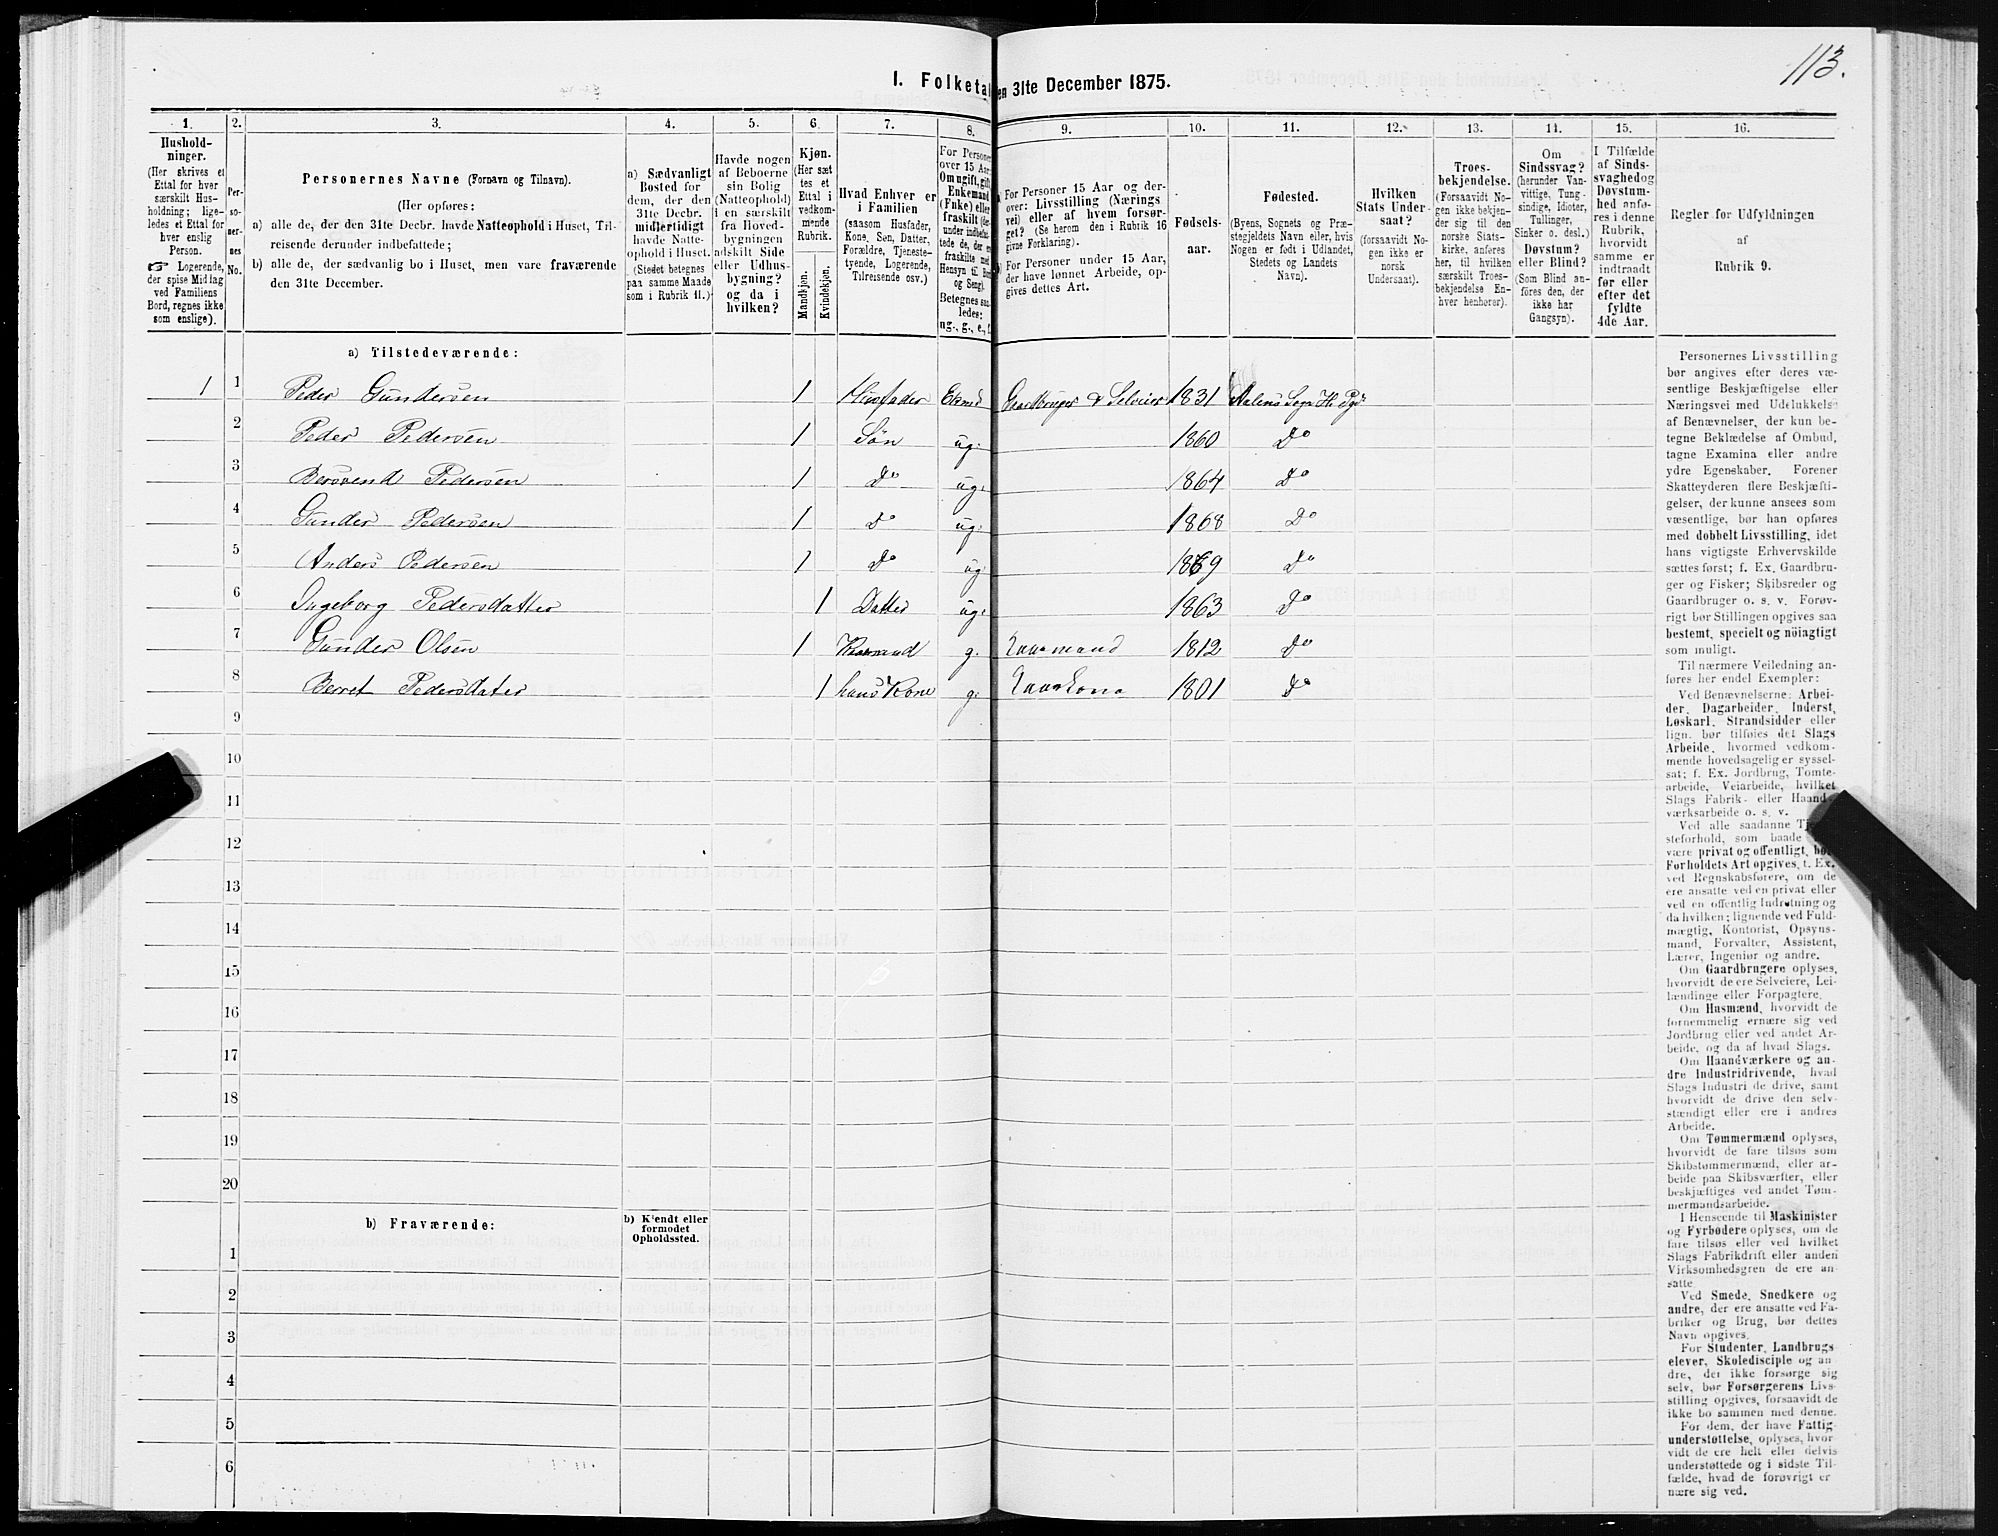 113.
I. Folketal
en 31te December 1875.
1. 2. 3. 4. 5. 6. 7. 8. 9. 10. 11. 12. 13. 14. 15. 16.
Hushold-
ninger.
(Her skrives et
Ettal for hver
særskilt Hus-
holdning; lige-
ledes et Ettal for
hver enslig
Person.
☞ Logerende,
der spise Middag
ved Familiens
Bord, regnes ikke
som enslige).
Per-
so-
ner-
nes
No.
Personernes Navne (Fornavn og Tilnavn).
(Her opføres:
a) alle de, der den 31te Decbr. havde Natteophold i Huset, Til-
reisende derunder indbefattede;
b) alle de, der sædvanlig bo i Huset, men vare fraværende
den 31te December.
a) Sædvanligt
Bosted for
dem, der den
31te Decbr.
midlertidigt
havde Natte-
ophold i Huset.
(Stedet betegnes
paa samme Maade
som i Rubrik 11.)
Havde nogen
af Beboerne
sin Bolig
(Natteophold)
i en særskilt
fra Hoved-
bygningen
adskilt Side
eller Udhus-
bygning?
og da i
hvilken?
Kjøn.
(Her sæt
tes et
Ettal i
vedkom-
mende
Rubrik.
Mandkjøn.
Kvindekjøn.
Hvad Enhver er
i Familien
(saasom Husfader,
Kone, Søn, Datter,
Forældre, Tjeneste-
tyende, Logerende,
Tilreisende osv.)
For Personer
over 15 Aar
Om ugift, gift
Enkemand
(Enke) eller
fraskilt (der-
under indbefat-
tede de, der er
fraskilte med
Hensyn til Bord
og Seng).
Betegnes saa-
ledes:
ug., g., e., f.
a) For Personer 15 Aar og der-
over: Livsstilling (Nærings
vei) eller af hvem forsør-
get? (Se herom den i Rubrik 16
givne Forklaring).
b) For Personer under 15 Aar,
der have lønnet Arbeide, op-
gives dettes Art.
Fødsels-
aar.
Fødested.
(Byens, Sognets og Præ-
stegjeldets Navn eller, hvis
Nogen er født i Udlandet,
Stedets og Landets
Navn).
Hvilken
Stats Under-
saat?
(forsaavidt No-
gen ikke er
norsk
Undersaat).
Troes-
bekjendelse.
(Forsaavidt No-
gen ikke bekjen-
der sig til den
norske Stats-
kirke, anføres
her, til hvilken
særskilt Troes-
bekjendelse En-
hver henhører).
Om
Sindssvag?
(herunder Van-
vittige, Tung-
sindige, Idioter,
Tullinger,
Sinker o. desl.)
Døvstum?
eller Blind?
(Som Blind an-
føres den, der
ikke har
Gangsyn).
I Tilfælde
af Sinds-
svaghed og
Døvstum-
hed anfø-
res i denne
Rubrik,
hvorvidt
samme er
indtraadt
før eller
efter det
fyldte
4de Aar.
Regler for Udfyldningen
af
Rubrik 9.
a) Tilstedeværende:
1 1 Peder Gundersen 1 Husfader Gaardbruger & Selveier 1831 Aalens Sogn
2 Peder Pedersen 1 Søn ug: 1860 Do
3 Bersvend Pedersen 1 Do ug: 1864 Do
4 Gunder Pedersen 1 Do ug: 1868 Do
5 Anders Pedersen 1 Do ug 1869 Do
6 Ingeborg Pedersdatter 1 Datter ug: 1863 Do
7 Gunder Olsen 1 g. Kaarmand 1812 Do
8 Berret Pedersdater 1 hans Kone g. Kaarkona 1801 Do
9
10
11
12
13
14
15
16
17
18
19
20
b) Fraværende:
b) Kjendt eller
formodet
Opholdssted.
1
2
3
4
5
6
Personernes Livsstilling
bør angives efter deres væ-
sentlige Beskjæftigelse eller
Næringsvei med Udelukkelse
af Benævnelser, der kun be-
tegne Beklædelse af Ombud,
tagne Examina eller andre
ydre Egenskaber. Forener
Skatteyderen flere Beskjæfti-
gelser, der kunne ansees som
væsentlige, bør han opføres
med dobbelt Livsstilling, idet
hans vigtigste Erhvervskilde
sættes først; f. Ex. Gaardbru-
ger og Fisker; Skibsreder og
Gaardbruger o. s. v. Forøv-
rigt bør Stillingen opgives saa
bestemt, specielt og nöiagtigt
som muligt.
Til nærmere Veiledning an-
føres her endel Exempler:
Ved Benævnelserne: Arbei-
der, Dagarbeider, Inderst,
Løskarl, Strandsidder eller
lign. bør tilføies det Slags
Arbeide, hvormed vedkom-
mende hovedsagelig er syssel-
sat; f. Ex. Jordbrug, Tomte-
arbeide, Veiarbeide, hvilket
Slags Fabrik- eller Haand-
værksarbeide o. s. v.
Ved alle saadanne Tjene-
steforhold, som baade kan
være privat og offentligt, bør
Forholdets Art opgives, t. Ex.
ved Regnskabsførere, om de
ere ansatte ved en privat eller
ved en offentlig Indretning og
da hvilken; lignende ved Fuld-
mægtig, Kontorist, Opsyns-
mand, Forvalter, Assistent,
Lærer, Ingeniør og andre.
Om Gaardbrugere oplyses,
hvorvidt de ere Selveiere, Lei-
lændinge eller Forpagtere.
Om Husmænd, hvorvidt de
fornemmelig ernære sig ved
Jordbrug eller ved andet Ar-
beide, og da af hvad Slags.
Om Haandværkere og an-
dre Industridrivende, hvad
Slags Industri de drive, samt
hvorvidt de drive den selv-
stændigt eller ere i andres
Arbeide.
Om Tømmermænd oplyses,
hvorvidt de fare tilsøs som
Skibstømmermænd, eller ar-
beide paa Skibsværfter, eller
beskjæftiges ved andet Tøm-
mermandsarbeide.
I Henseende til Maskinister
og Fyrbødere oplyses, om de
fare tilsøs eller ved hvilket
Slags Fabrikdrift eller anden
Virksomhedsgren de ere an-
satte.
Ved Smede, Snedkere og
andre, der ere ansatte ved Fa-
briker og Brug, bør dettes
Navn opgives.
For Studenter, Landbrugs
elever, Skoledisciple og an-
dre, der ikke forsørge sig
selv, bør Forsørgerens Livs-
stilling opgives, forsaavidt de
ikke bo sammen med denne.
For dem, der have Fattig-
understøttelse, oplyses, hvor-
vidt de ere helt eller delvis
understøttede og i sidste Til-
fælde, hvad de forøvrigt er
nære sig ved.